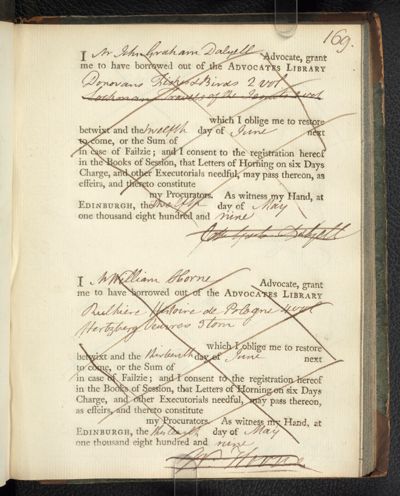 169.
I Mr John Graham Dalyell Advocate, grant
me to have borrowed out of the ADVOCATES LIBRARY
Donovans Fishes & Birds 2 vol
Lockmans Travels of the Jesuits 2 vol
which I oblige me to restore
betwixt and the twelfth day of June next
to come, or the Sum of
in case of Failzie; and I consent to the registration hereof
in the Books of Session, that Letters of Horning on six Days
Charge, and other Executorials needful, may pass thereon, as
effeirs, and thereto constitute
my Procurators. As witness my Hand, at
EDINBURGH, the twelfth day of May
one thousand eight hundred and nine
Dalyell
I Mr William Horne Advocate, grant
me to have borrowed out of the ADVOCATES LIBRARY
Rulhiere Histoire de Pologne 4 vol
Hertzberg Oeuvres 3 tom
which I oblige me to restore
betwixt and the thirteenth day of June next
to come, or the Sum of
in case of Failzie; and I consent to the registration hereof
in the Books of Session, that Letters of Horning on six Days
Charge, and other Executorials needful, may pass thereon,
as effeirs, and thereto constitute
my Procurators. As witness my Hand, at
EDINBURGH, the thirteenth day of May
one thousand eight hundred and nine
Wm Horne